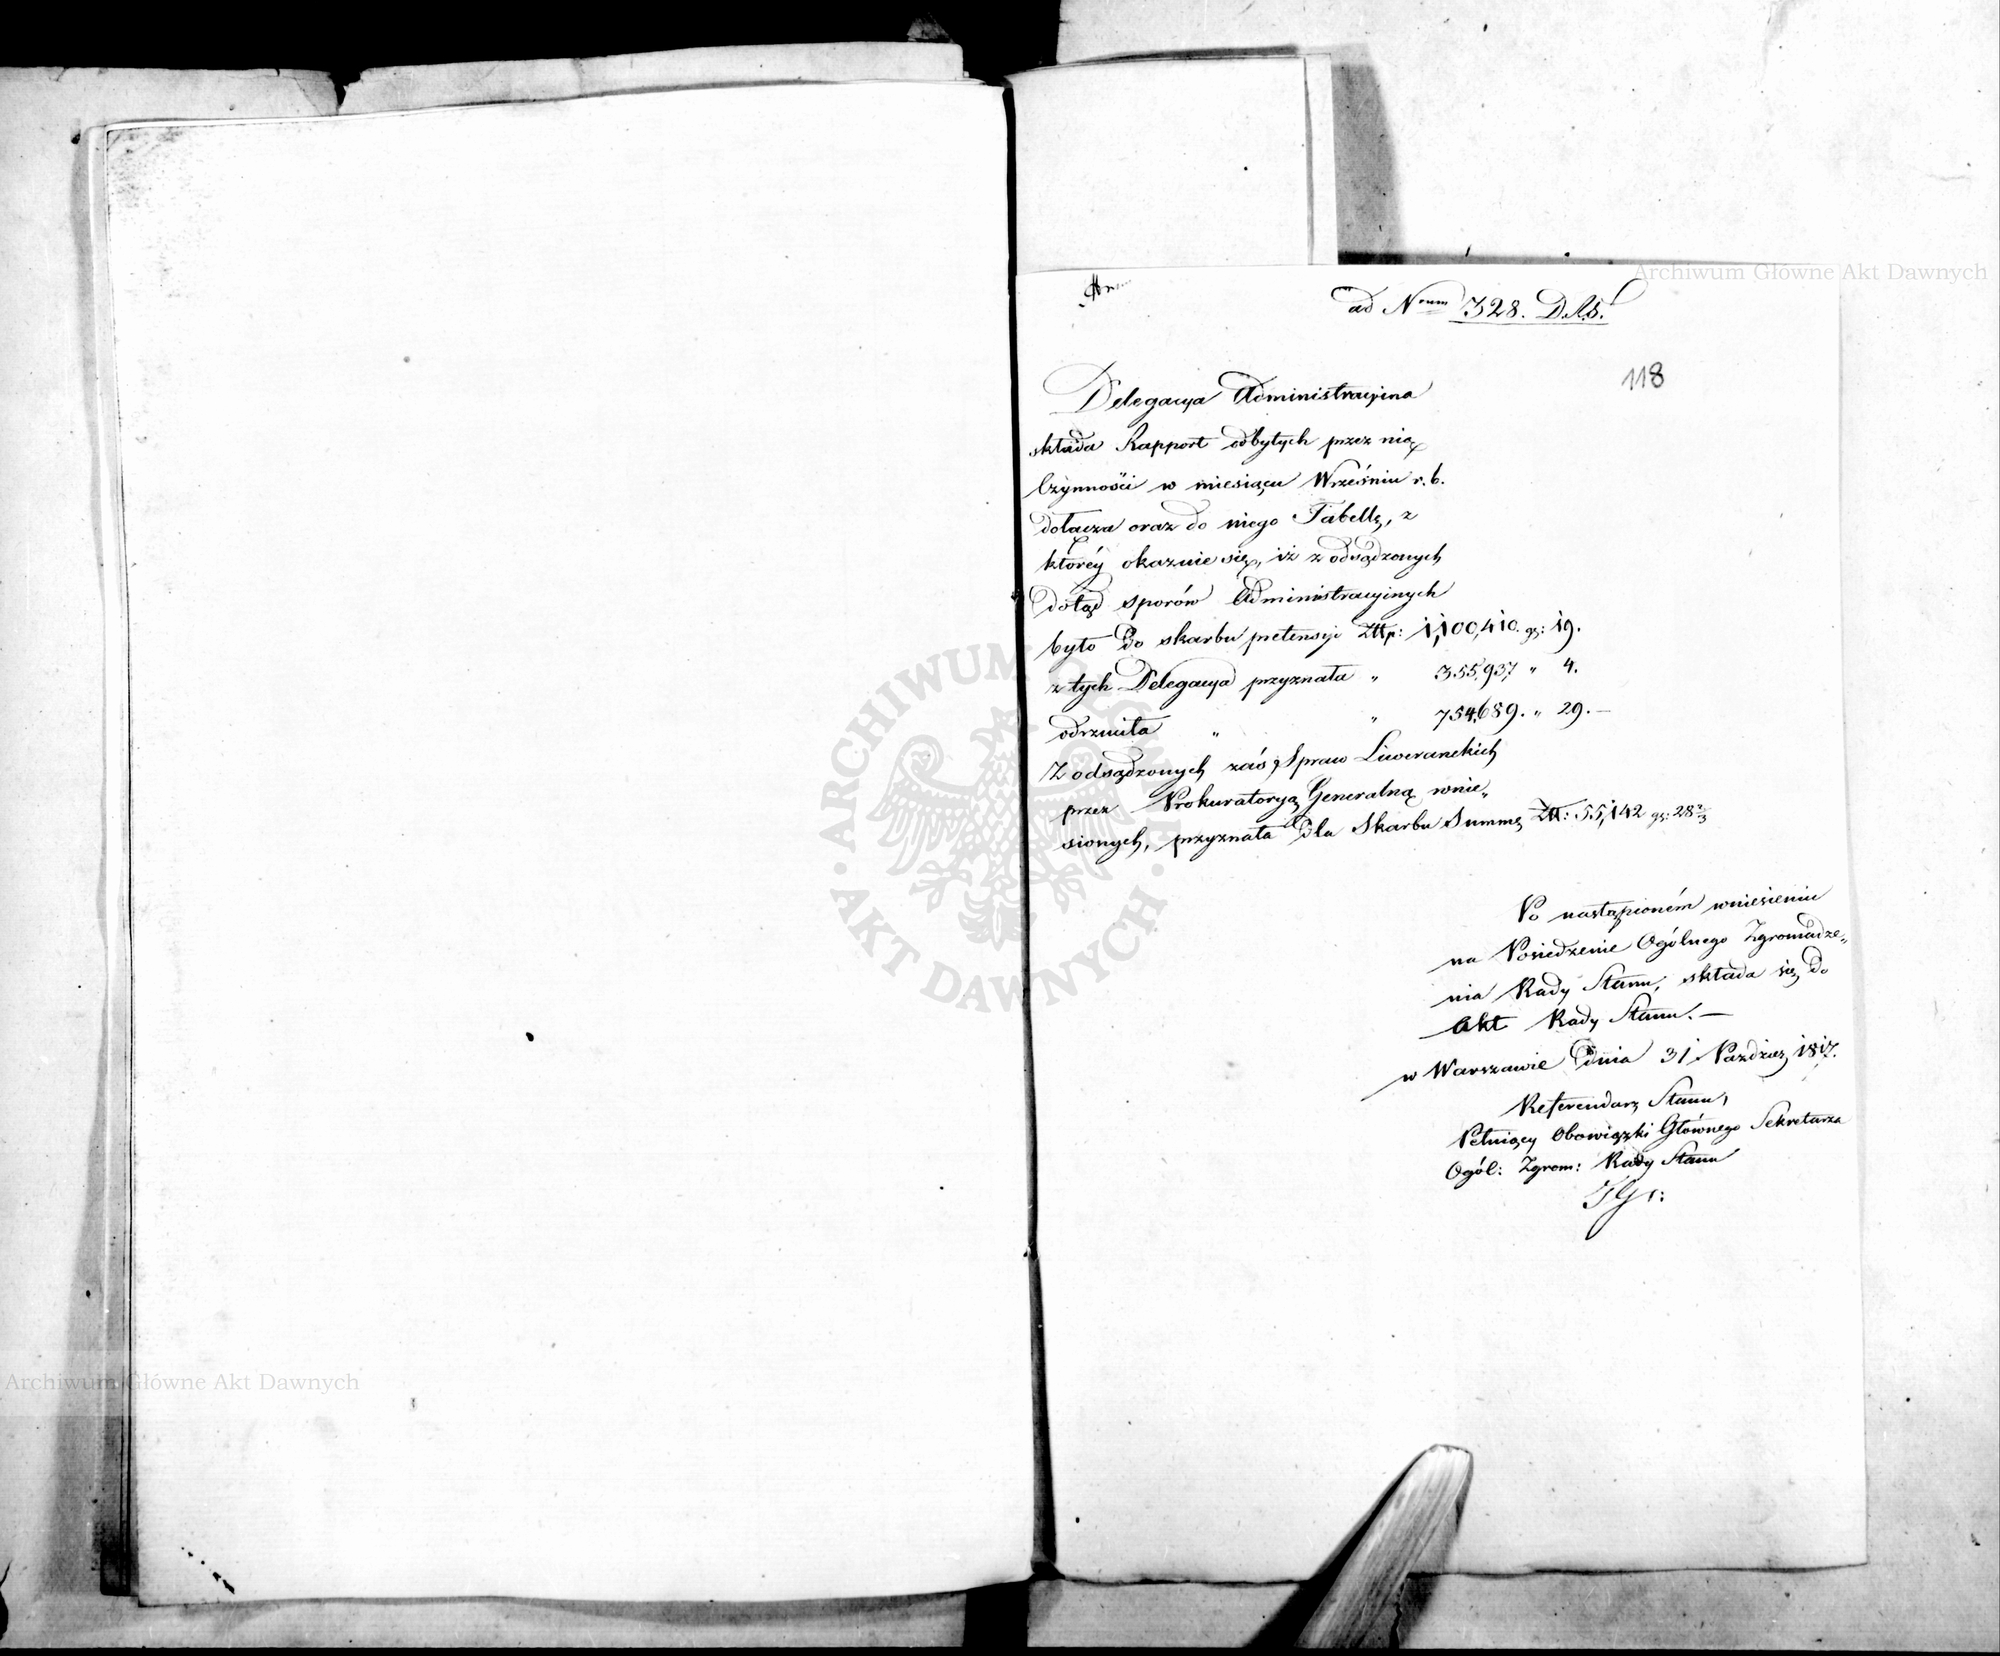 ad Nrum 328. D.A.S.
118
Delegacya Administracyina
składa Rapport odbytych przez nią
czynności w miesiącu Wrześniu r. b.
dołącza oraz do niego Tabellę, z
któréy okazuie się, iż z odsądzonych
dotąd sporów Administracyinych
było do skarbu pretensyi Złłp: 1,100,410. gr: 19.
z tych Delegacya przyznała " 355,937, " 4.
odrzuciła " " 754,689. " 29. —
Z odsądzonych zaś Spraw Liweranckich
przez Prokuratoryą Generalną wnie„
sionych, przyznała dla Skarbu Summę Złł: 55,142 gr: 28 2/3
Po nastąpioném wniesieniu
na Posiedzenie Ogólnego Zgromadze„
nia Rady Stanu, składa się do
Akt Rady Stanu. —
w Warszawie dnia 31 Paździer, 1817.
Referendarz Stanu,
Pełniący Obowiązki Głównego Sekretarza
Ogól: Zgrom: Rady Stanu
Archiwum Główne Akt Dawnych
Archiwum Główne Akt Dawnych
ARCHIWUM GŁÓWNE AKT DAWNYCH